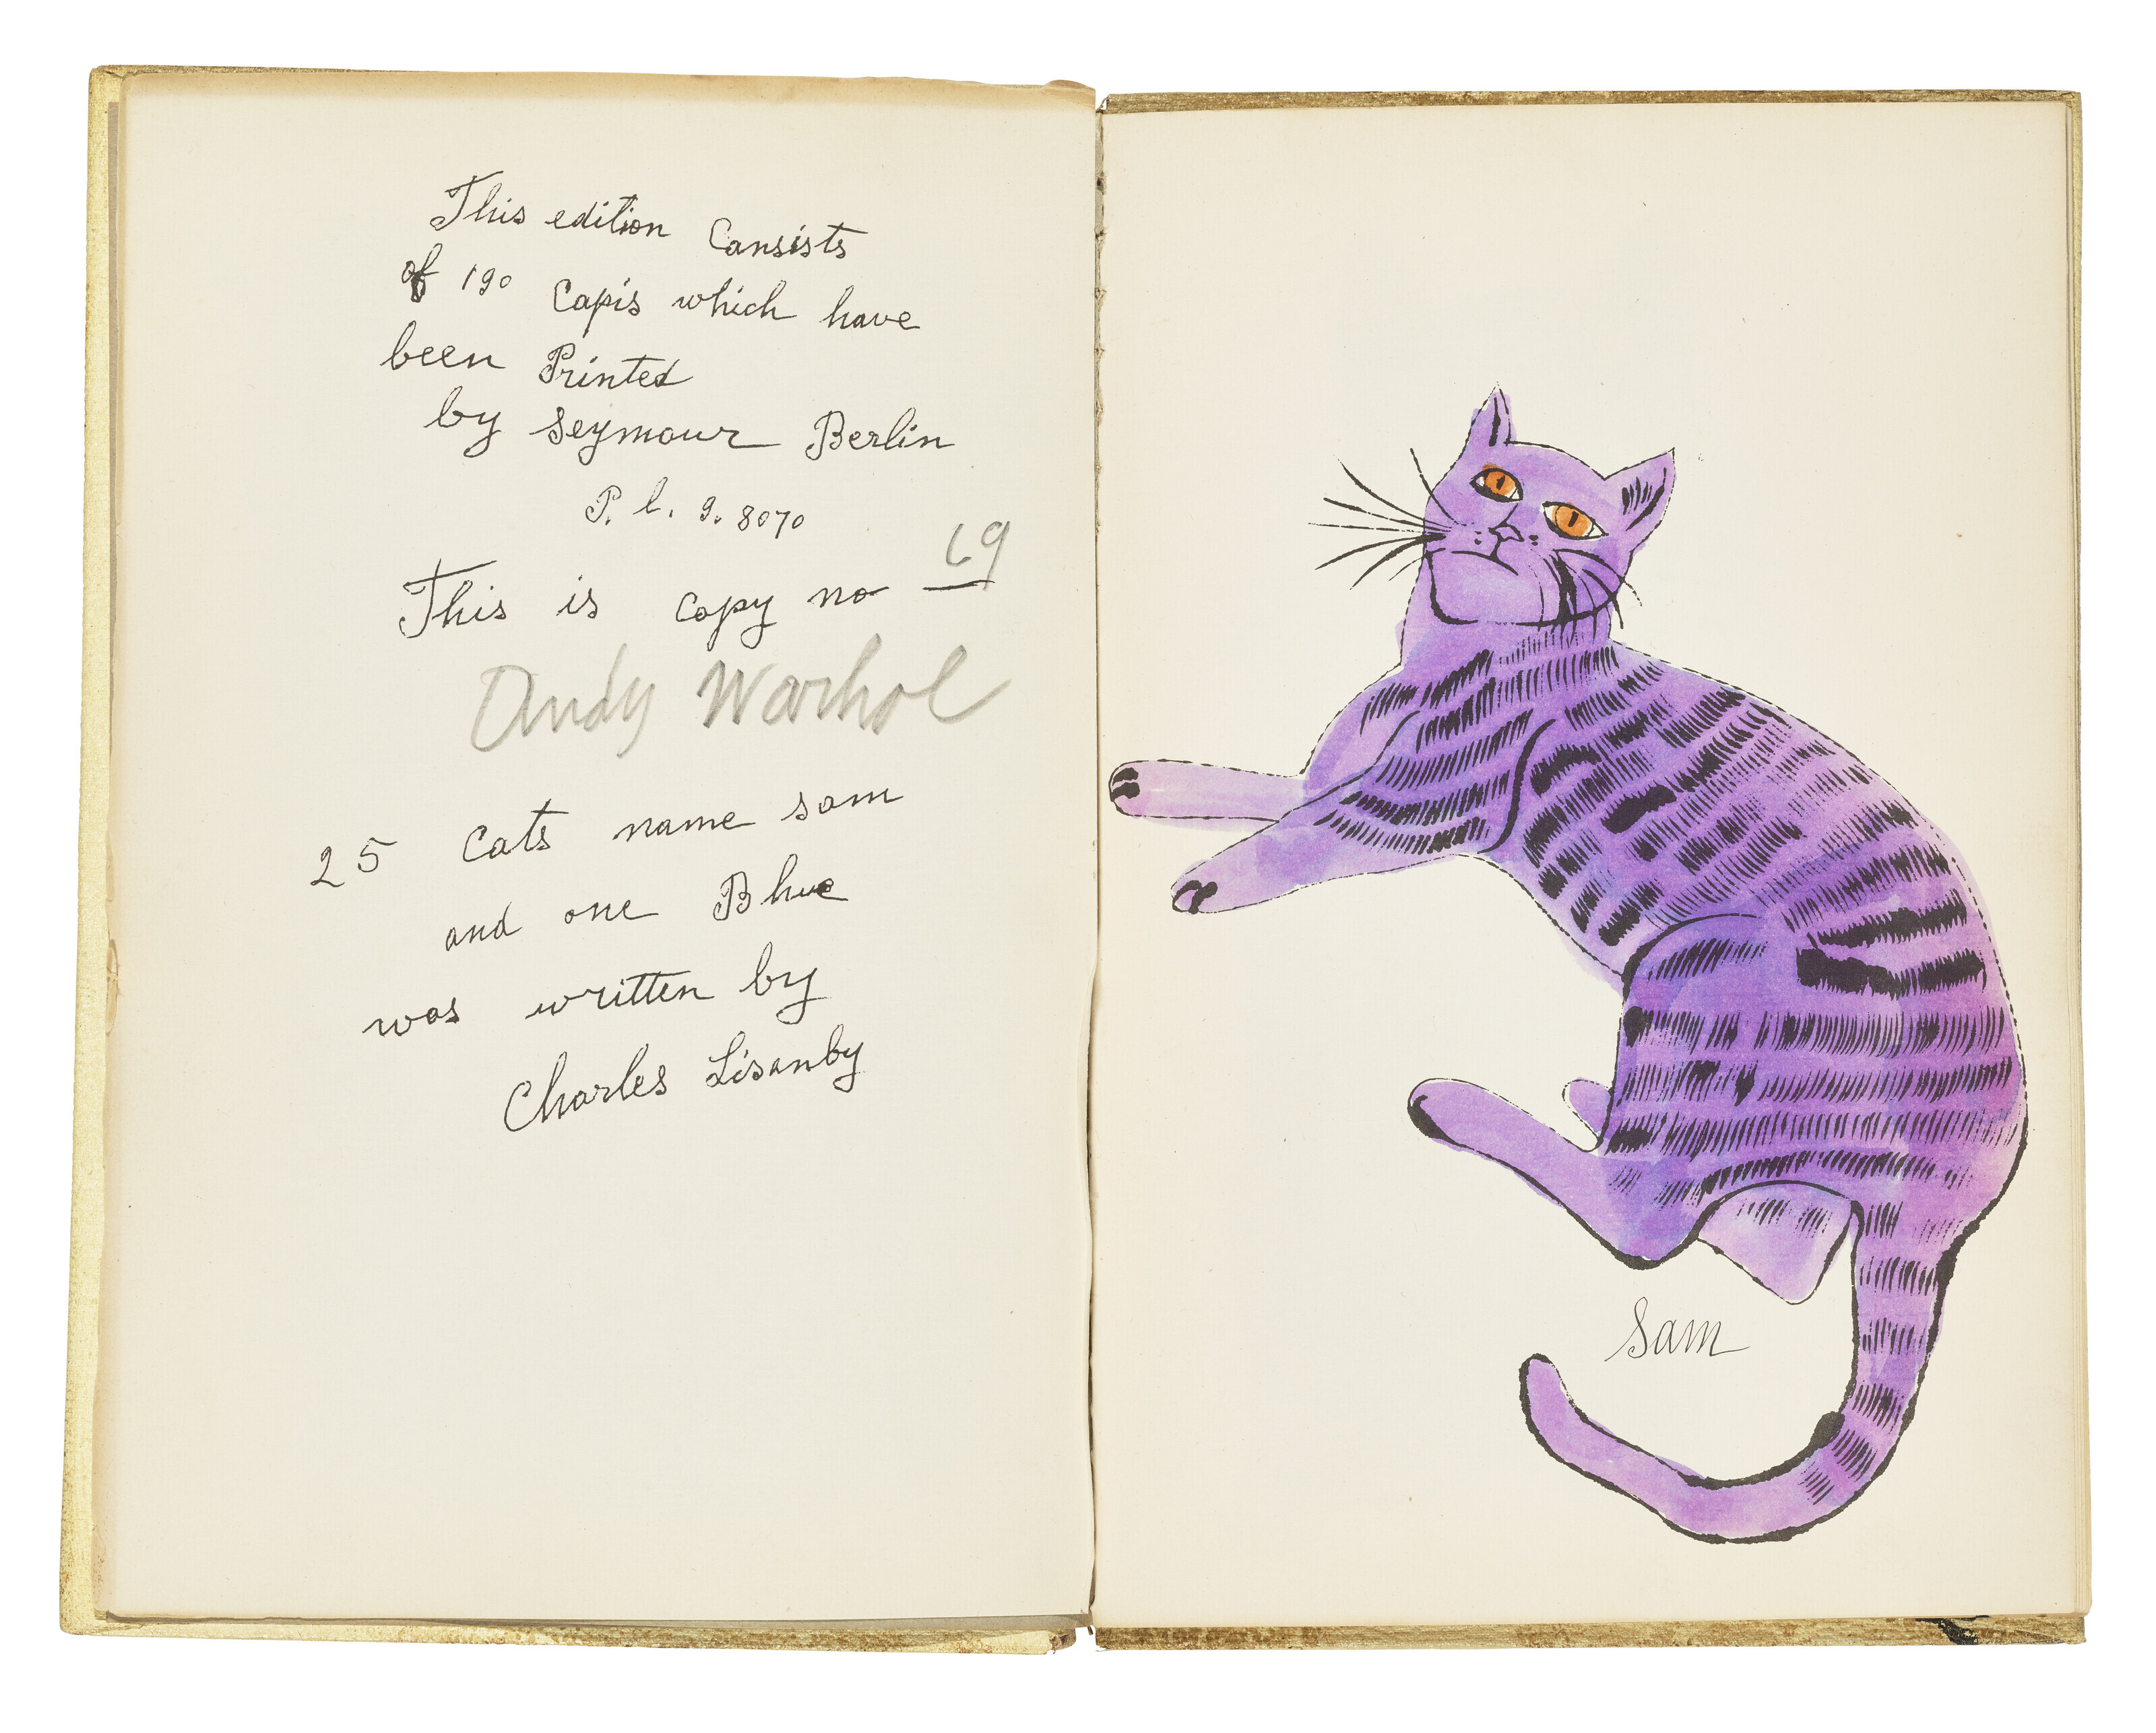 This edition Cansists
of 190 Capis which have
been Printed
by Seymour Berlin
P. l. 9. 8070
This is copy no 69
Andy Warhol
25 Cats name sam
and one Blue
was written by
Charles Lisanby
Sam